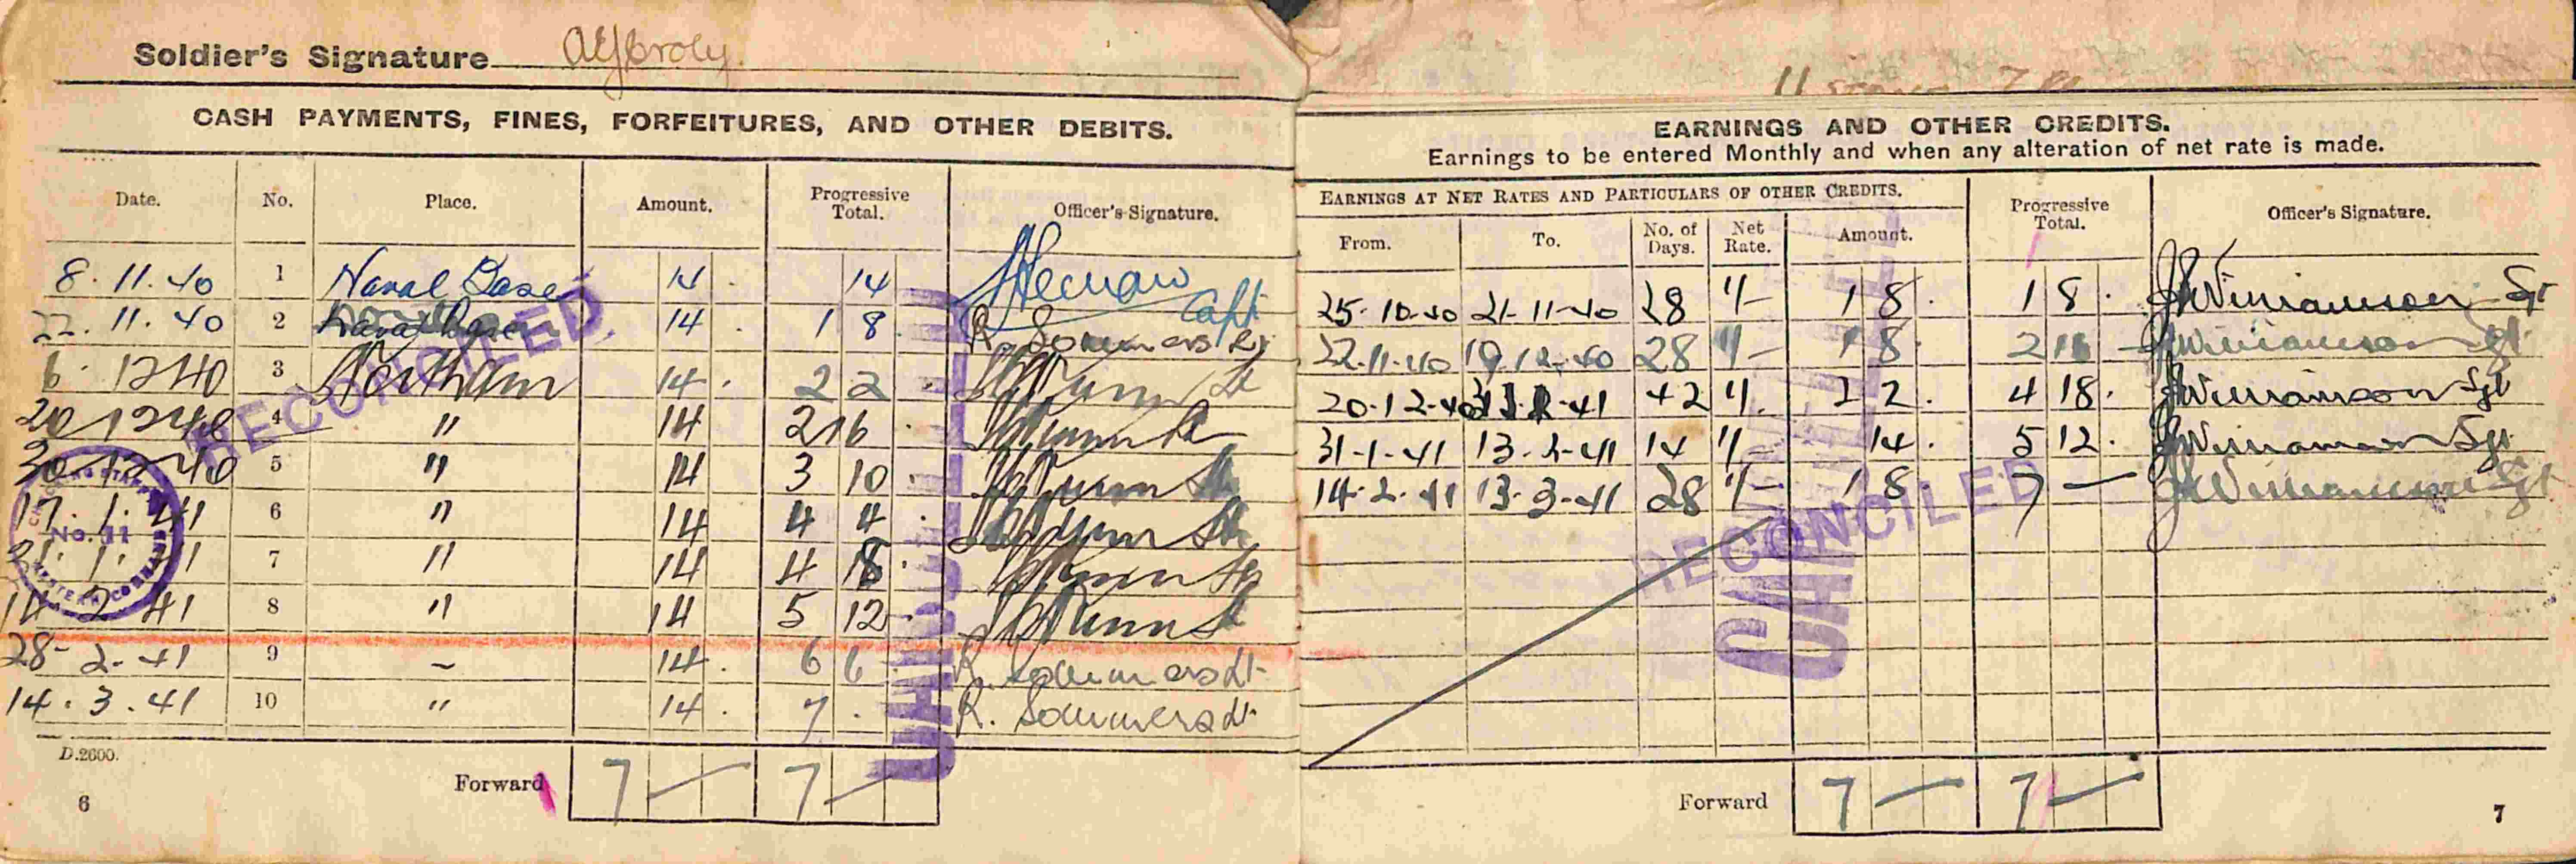 Soldier's Signature
CASH PAYMENTS, FINES, FORFEITURES, AND OTHER DEBITS.
Date. No. Place. Amount. Progressive Total. Officer's Signature.
8. 11. 40 1 Naval Base 14 . 14 Capt
22. 11. 40 2 14 . 1 8 . R. Sommers Lt
6. 12 40 3 Northam 14 . 2 2 .
20 12 40 4 " 14 2 16
30-12-40 5 " 14 3 10 .
17. 1. 41 6 " 14 4 4 .
1. 41 7 " 14 4 18 .
14 2 41 8 " 14 5 12 .
28-2-41 9 ~ 14 . 6 6 . R. Sommers Lt
14. 3. 41 10 " 14 . 7 . R. Sommers Lt
RECONCILED
No. 11
D.2600.
Forward 7 — 7 —
6
EARNINGS AND OTHER CREDITS.
Earnings to be entered Monthly and when any alteration of net rate is made.
EARNINGS AT NET RATES AND PARTICULARS OF OTHER CREDITS. Progressive Total. Officer's Signature.
From. To. No. of Days. Net Rate. Amount.
25-10-40 21-11-40 28 1/- 1 8 . 1 8 . Williamson Sgt
22-11-40 19.12.40 28 1/- 1 8 2 16 - Williamson Sgt
20-12-40 42 1/. 2 2 . 4 18 . Williamson Sgt
31-1-41 13-2-41 14 1/- 14 . 5 12 . Williamson Sgt
14-2-41 13-3-41 28 1/- 1 8 . 7 — Williamson Sgt
RECONCILED
Forward 7 — 7 —
7